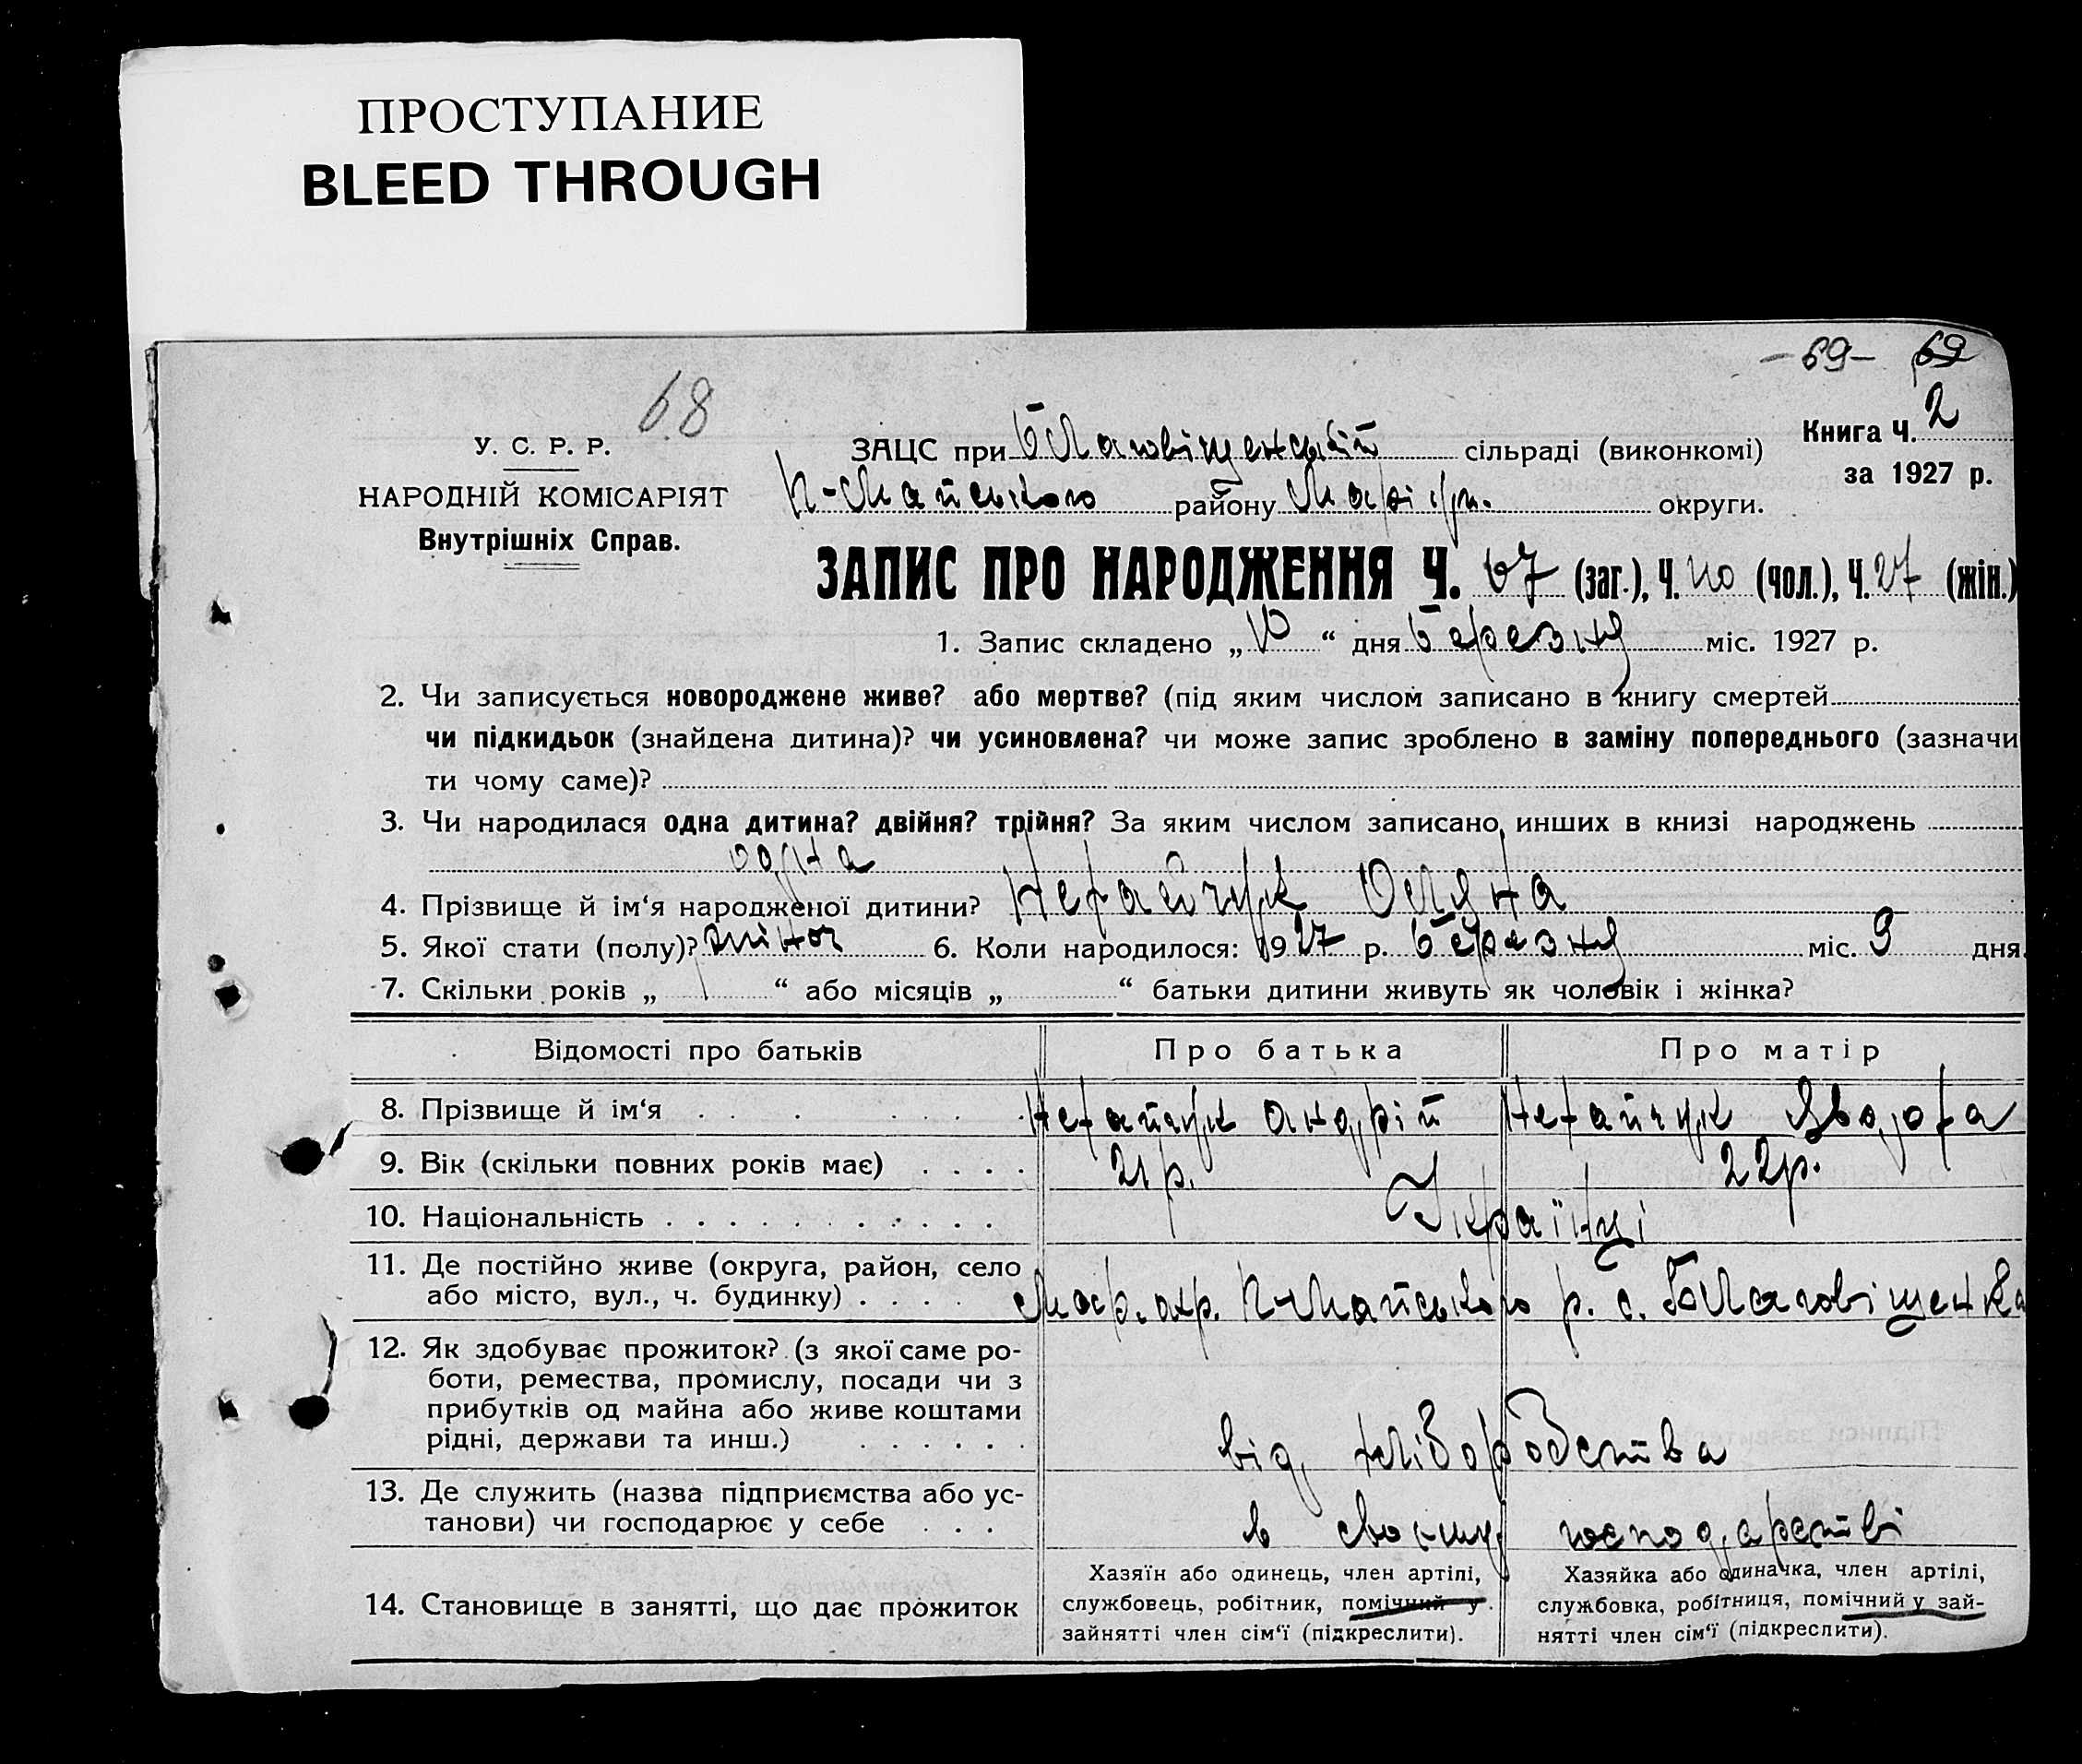 ПРОСТУПАНИЕ
BLEED THROUGH
-69- 69
68
Книга Ч. 2
за 1927 р.
У. С. Р. Р.
НАРОДНІЙ КОМІСАРІЯТ
Внутрішніх Справ.
ЗАЦС при Благовіщенській сільраді (виконкомі)
району Маріуп. округи.
ЗАПИС ПРО НАРОДЖЕННЯ Ч. 67 (заг.), Ч. 40 (чол.), Ч. 27 (жін.)
1. Запис складено „ 10 “ дня березня міс. 1927 р.
2. Чи записується новороджене живе? або мертве? (під яким числом записано в книгу смертей
чи підкидьок (знайдена дитина)? чи усиновлена? чи може запис зроблено в заміну попереднього (зазначи
ти чому саме)?
3. Чи народилася одна дитина? двійня? трійня? За яким числом записано инших в книзі народжень
одна
4. Прізвище й ім‘я народженої дитини? Негайчук Оляна
5. Якої стати (полу)? жіноч 6. Коли народилося: 1927 р. березня міс. 9 дня.
7. Скільки років „ 1 “ або місяців „ “ батьки дитини живуть як чоловік і жінка?
Відомості про батьків Про батька Про матір
8. Прізвище й ім‘я Негайчук Андрій Негайчук Явдоха
9. Вік (скільки повних років має) 21 р. 22 р.
10. Національність Українці
11. Де постійно живе (округа, район, село
або місто, вул., ч. будинку) Мар. окр. р. с. Благовіщенка
12. Як здобуває прожиток? (з якої саме ро-
боти, ремества, промислу, посади чи з
прибутків од майна або живе коштами
рідні, держави та инш.) від хліборобства
13. Де служить (назва підприємства або ус-
танови) чи господарює у себе в своєму господарстві
14. Становище в занятті, що дає прожиток
Хазяїн або одинець, член артілі,
службовець, робітник, помічний у
зайнятті член сім‘ї (підкреслити).
Хазяйка або одиначка, член артілі,
службовка, робітниця, помічний у зай-
нятті член сім‘ї (підкреслити).